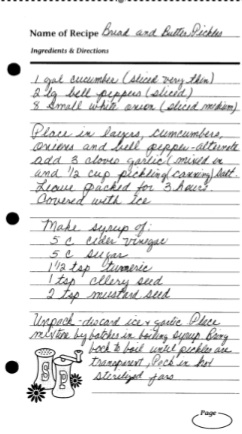 Name of Recipe Bread and Butter Pickles
Ingredients & Directions
1 gal cucumber (sliced very thin)
2 lg bell peppers (sliced)
8 small white onion (sliced medium)
Place in layers, cumcumbers,
onions and bell pepper - alternate
add 3 cloves garlic (mixed in
and 1/2 cup pickling (canning) salt.
Leave packed for 3 hours.
Covered with ice
Make syrup of:
5 c cider vinegar
5 c sugar
1 1/2 tsp turmeric
1 tsp cllery seed
2 tsp mustard seed
Unpack - discard ice & garlic Place
mixture by batches in boiling syrup. Bring
back to boil until pickles are
transparent, Pack in hot
sterilized jars
Page